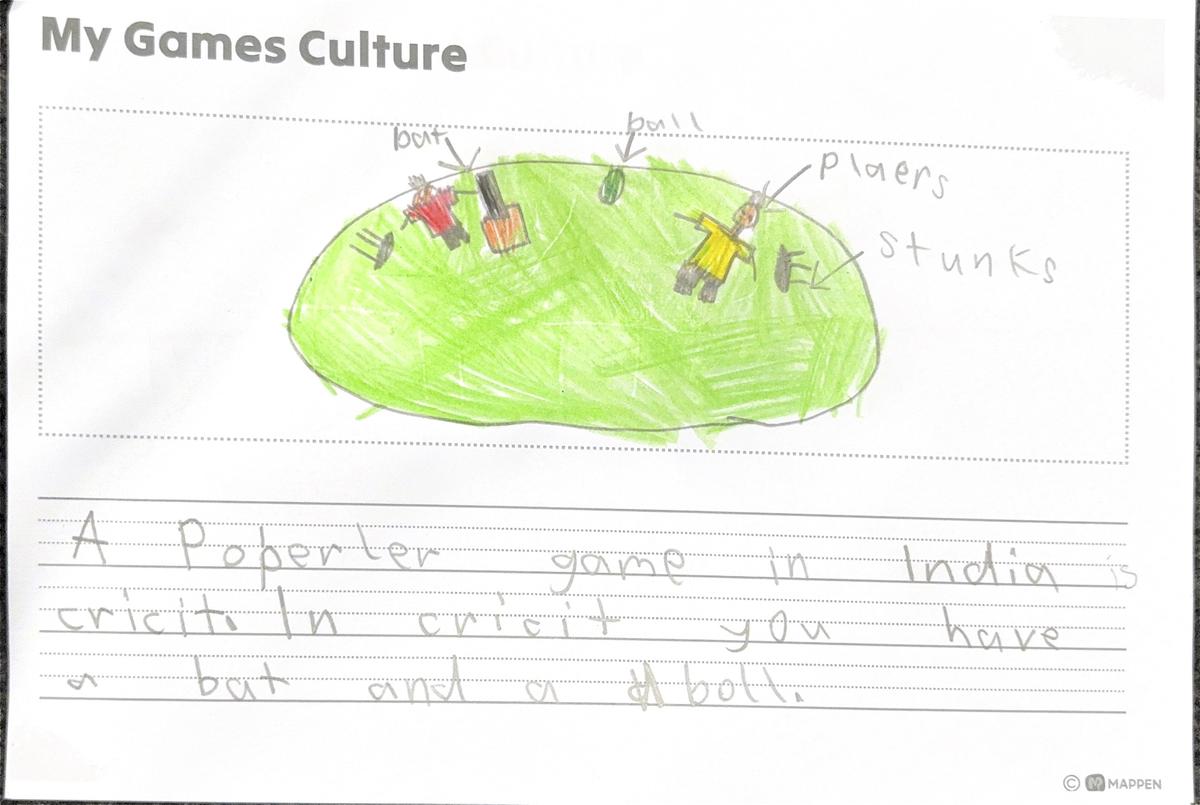 My Games Culture
bat
ball
Plaers
stunks
A Poperler game in India is
cricit. In cricit you have
a bat and a boll.
© M MAPPEN